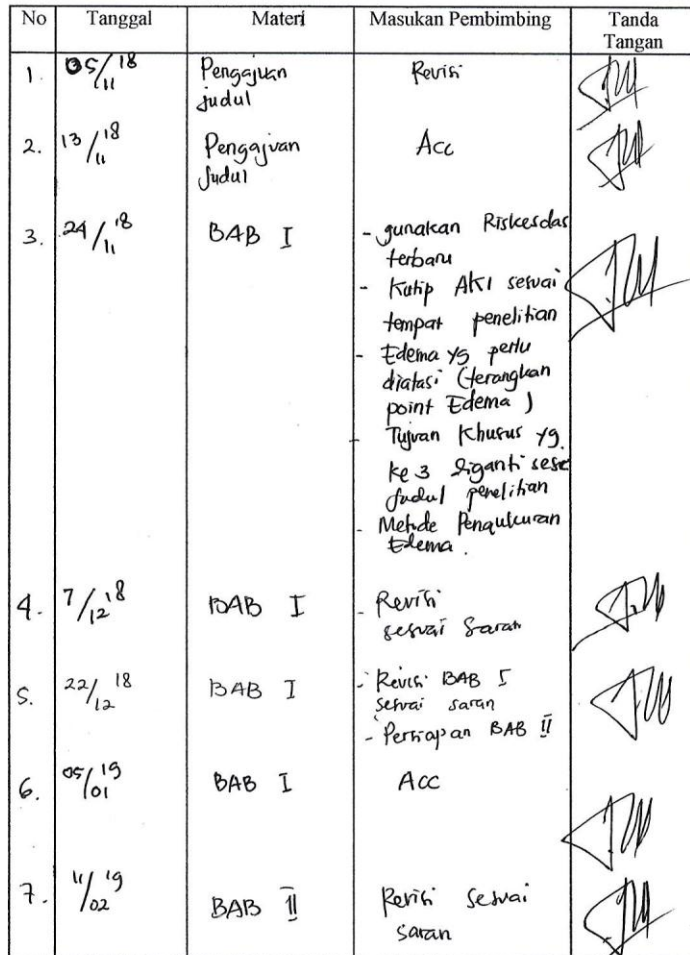 No Tanggal Materi Masukan Pembimbing Tanda
Tangan
1. 05/11 18 Pengajuan Revisi
judul
2. 13/11 18 Pengajuan Acc
Judul
3. 24/11 18 BAB I - gunakan Riskesdas
terbaru
- Kutip AKI sesuai
tempat penelitian
- Edema yg perlu
diatasi (terangkan
point Edema)
- Tujuan Khusus yg.
ke 3 diganti sesuai
Judul penelitian
- Metode Pengukuran
Edema.
4. 7/12 18 BAB I - Revisi
sesuai Saran
5. 22/12 18 BAB I - Revisi BAB I
sesuai saran
- Persiapan BAB II
6. 05/01 19 BAB I Acc
7. 11/02 19 BAB II Revisi Sesuai
saran